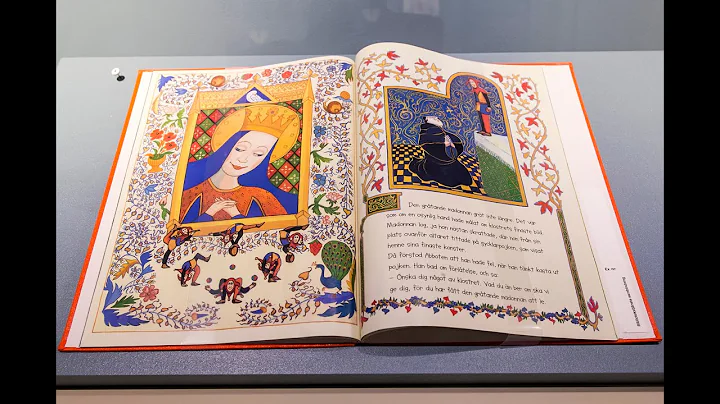 Den gråtande madonnan grät inte längre. Det var
som om en osynlig hand hade målat om klostrets finaste bild.
Madonnan log, ja hon nästan skrattade, där hon från sin
plats ovanför altaret tittade på gycklarpojken, som visat
henne sina finaste konster.
Då förstod Abboten att han hade fel, när han tänkt kasta ut
pojken. Han bad om förlåtelse, och sa:
– Önska dig något av klostret. Vad du än ber om ska vi
ge dig, för du har fått den gråtande madonnan att le.